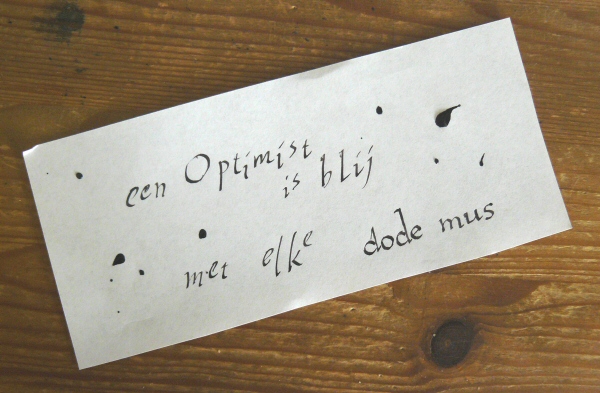 een Optimist
is blij
met elke dode mus